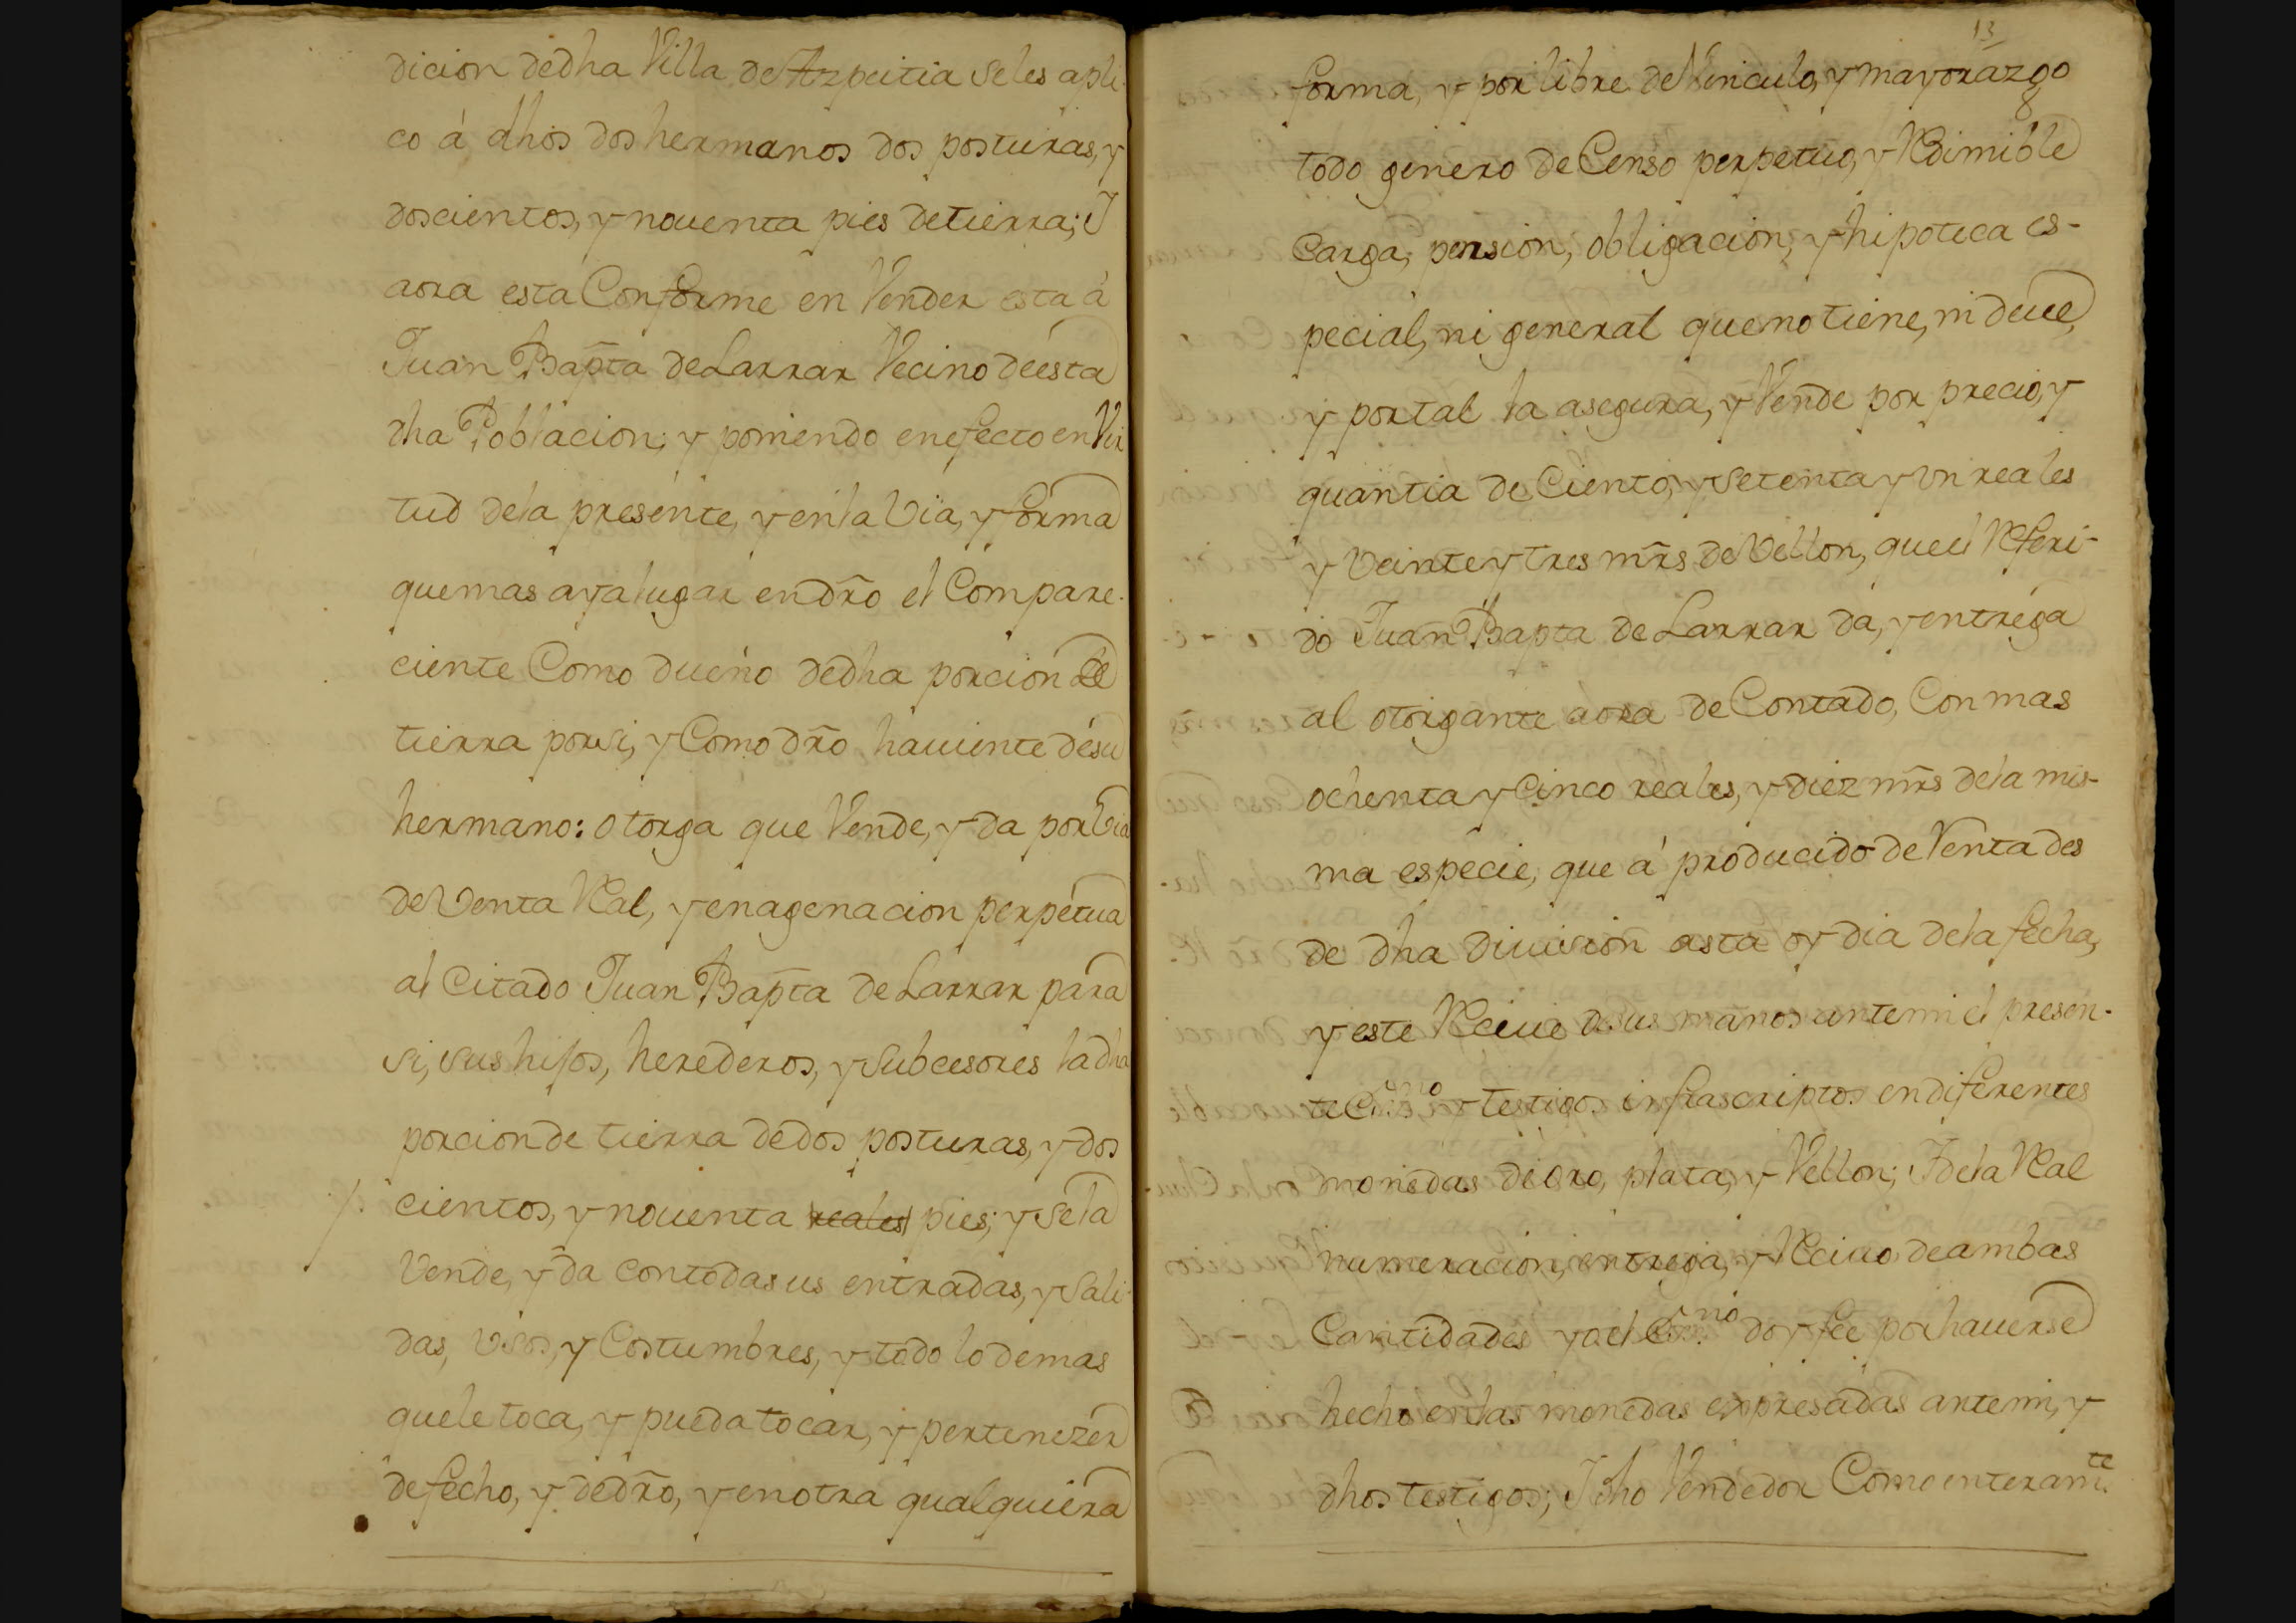 dicion dedha Villa de Azpeitia seles apli-
co á dhos dos hermanos dos posturas, y
doscientos, y nouenta pies de tierra; I
aora esta Conforme en Vender esta á
Juan Bapta de Larrar Vecino de esta
dha Poblacion; y poniendo en efecto en Vir
tud dela presente, y en la via, y forma
que mas aya lugar en dro el Compare-
ciente Como dueño dedha porcion de
tierra por si, y Como dro hauiente de su
hermano: otorga que Vende, y da por Via
de Venta Real, y enagenacion perpetua
al Citado Juan Bapta de Larrar para
si, sus hijos, herederos, y Subcesores la dha
porcion de tierra de dos posturas, y dos
cientos, y nouenta reales pies; y se la
Vende, y da con todas us entradas, y Sali-
das, Vsos, y Costumbres, y todo lo demas
que le toca, y pueda tocar, y pertenezer
de fecho, y de dro, y en otra qualquiera
13
forma, y por libre de Vinculo, y mayorazgo
todo genero de Censo perpetuo, y Redimible
Carga, pension, obligacion, y hipoteca es-
pecial, ni general que no tiene, ni deue,
y por tal la asegura, y Vende por precio, y
quantia de Ciento, y setenta y vn reales
y veinte y tres mrs de Vellon, que el Referi-
do Juan Bapta de Larrar da, y entrega
al otorgante aora de Contado, Con mas
ochenta y Cinco reales, y diez mrs dela mis-
ma especie, que á producido de Venta des
de dha diuision asta oy dia dela fecha,
y este Reciue de sus manos ante mi el presen-
te Essno y testigos infrascriptos en diferentes
monedas de oro, plata, y Vellon; I dela Real
numeracion, entrega, y Reciuo de ambas
Cantidades yo el Essno doy fee por hauerse
hecho en las monedas expresadas ante mi, y
dhos testigos; I dho Vendedor Como enteramte